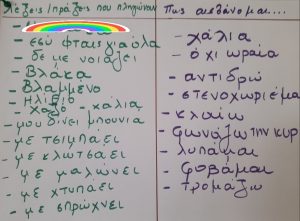 Λέξεις/πράξεις που πληγώνουν
- εσύ φταις για όλα
- δε με νοιάζει
- Βλάκα
- Βλαμμένο
- Ηλίθιο
- Χαζό - χάλια
- μου δίνει μπουνιά
- με τσιμπάει
- με κλωτσάει
- με μαλώνει
- με χτυπάει
- με σπρώχνει
Πως αισθάνομαι....
- χάλια
- όχι ωραία
- αντιδρώ
- στενοχωριέμαι
- κλαίω
- φωνάζω την κυρ
- λυπάμαι
- φοβάμαι
- τρομάζω